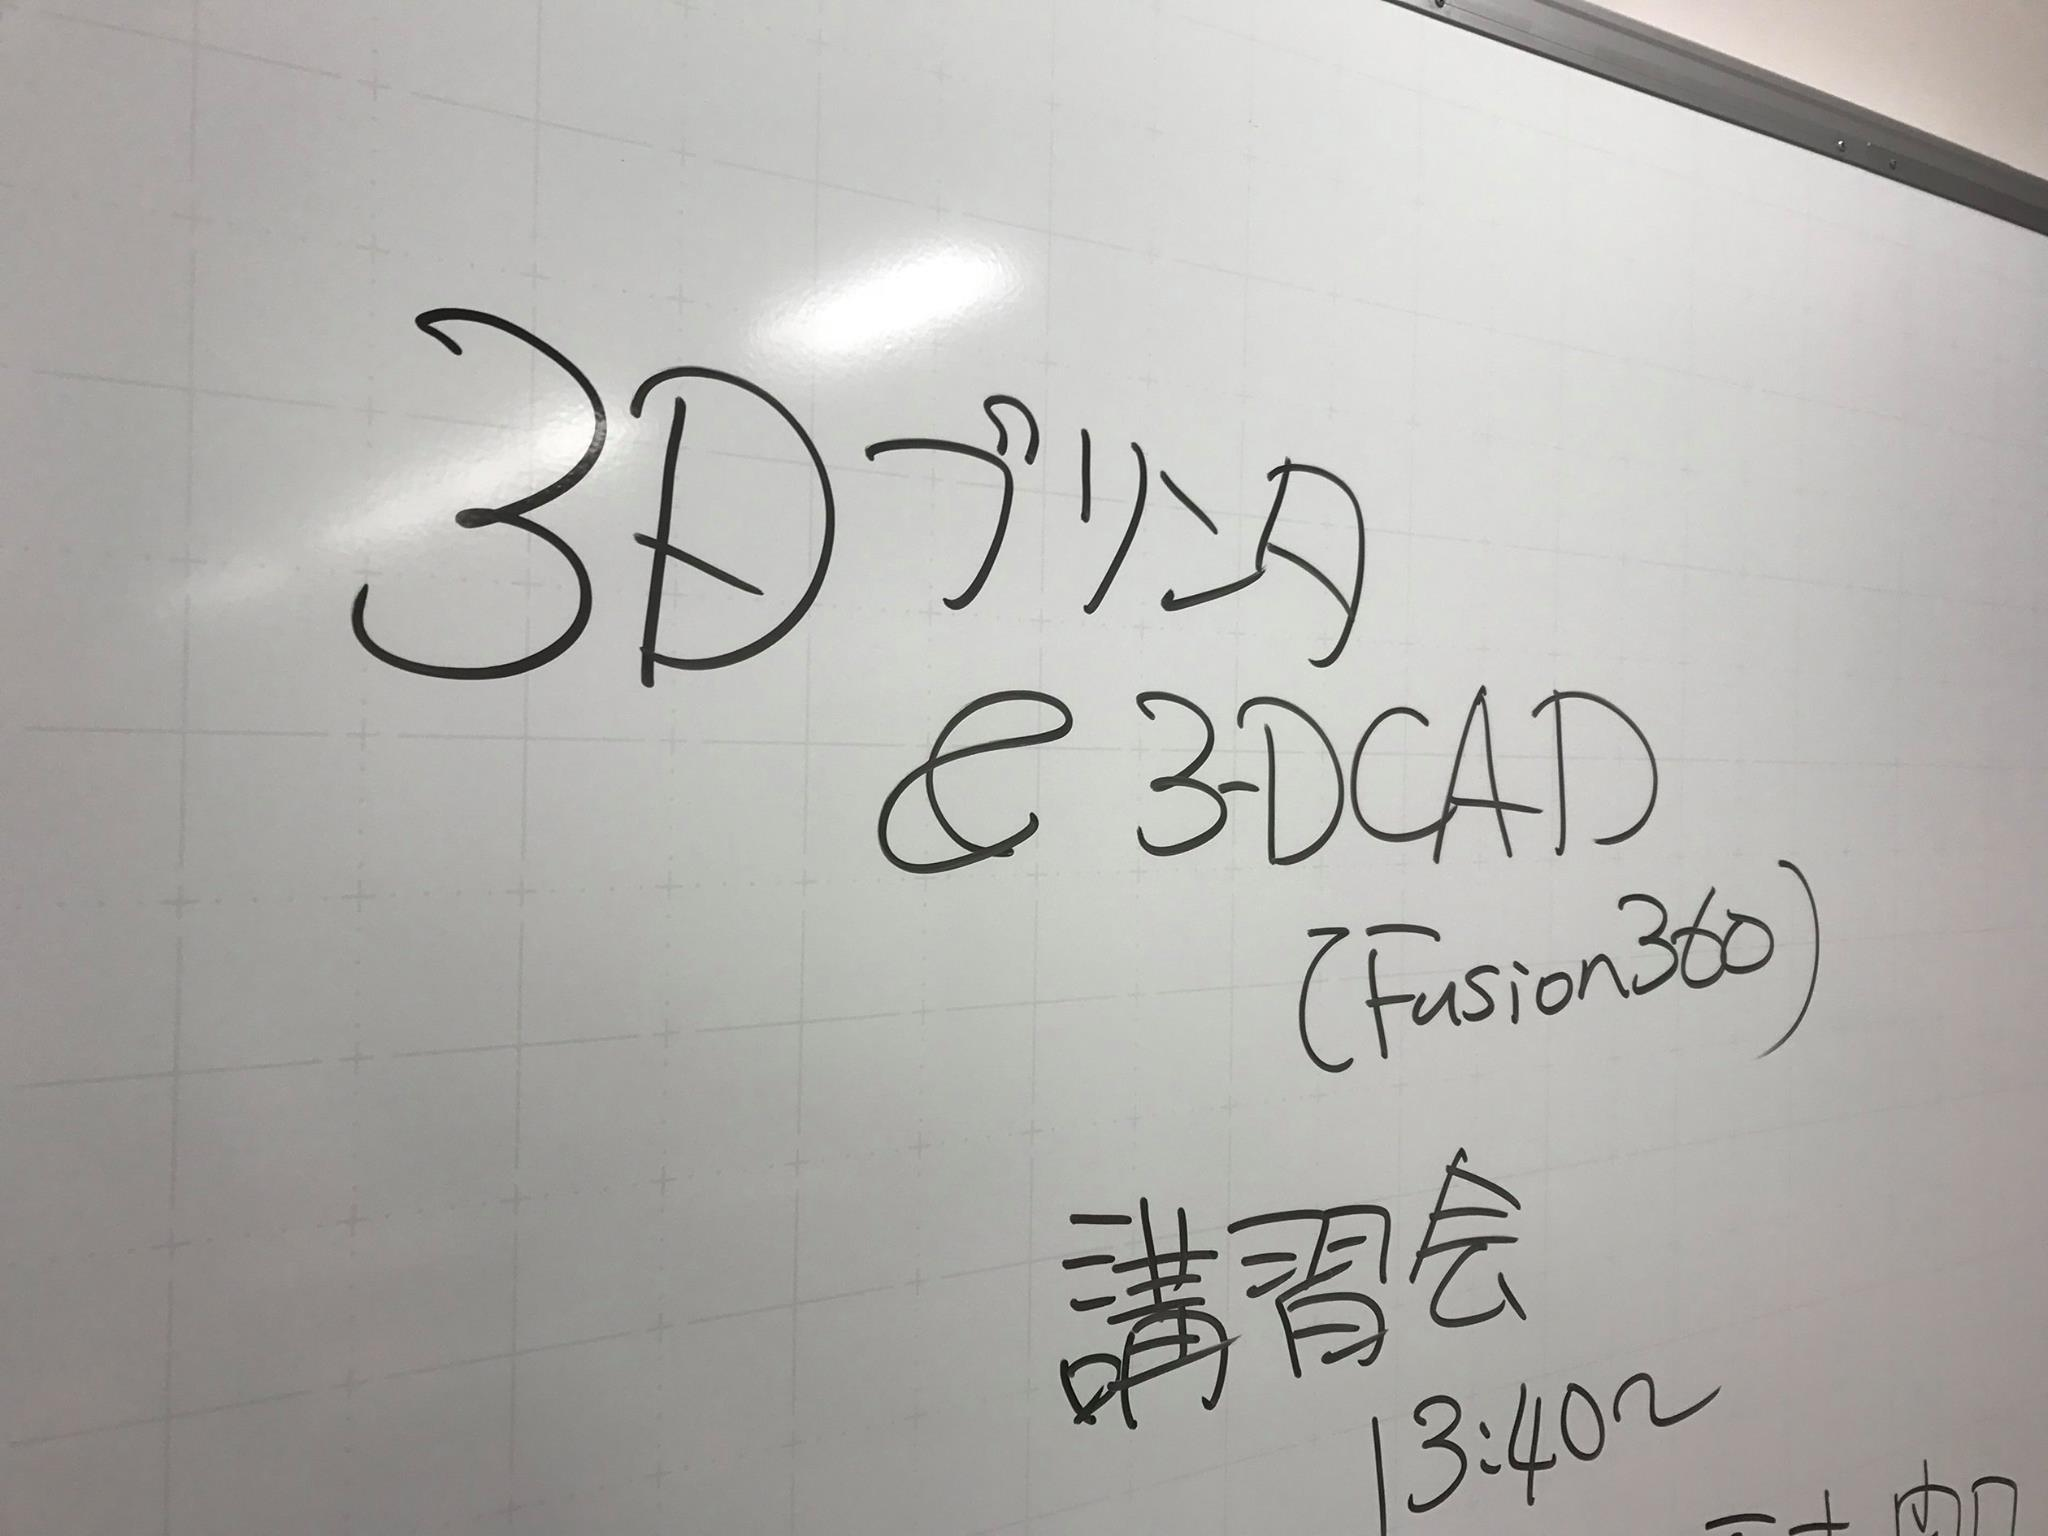 3Dプリンタ
& 3-DCAD
(Fusion360)
講習会
13:40~